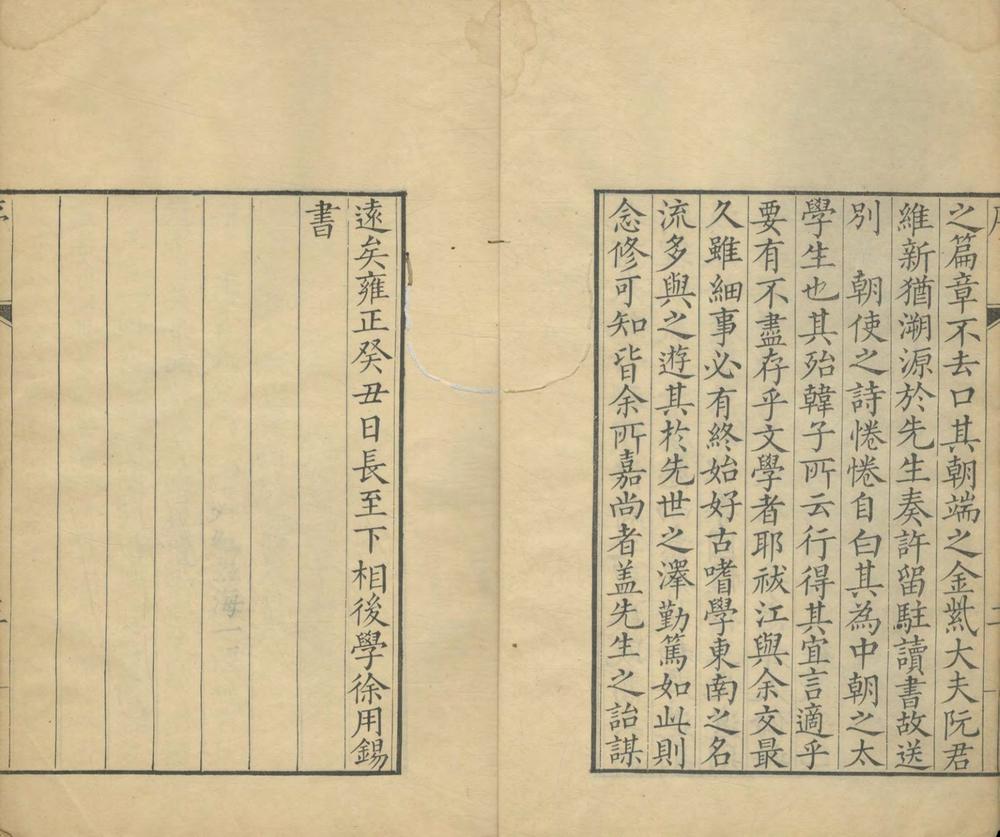 之篇章不去口其朝端之金紫大夫阮君
維新猶溯源於先生奏許留駐讀書故送
別　朝使之詩惓惓自白其為中朝之太
學生也其殆韓子所云行得其宜言適乎
要有不盡存乎文學者耶祓江與余交最
久雖細事必有終始好古嗜學東南之名
流多與之遊其於先世之澤勤篤如此則
念修可知皆余所嘉尚者盖先生之詒謀
遠矣雍正癸丑日長至下相後學徐用錫
書